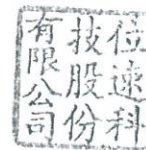 位速科
技股份
有限公司